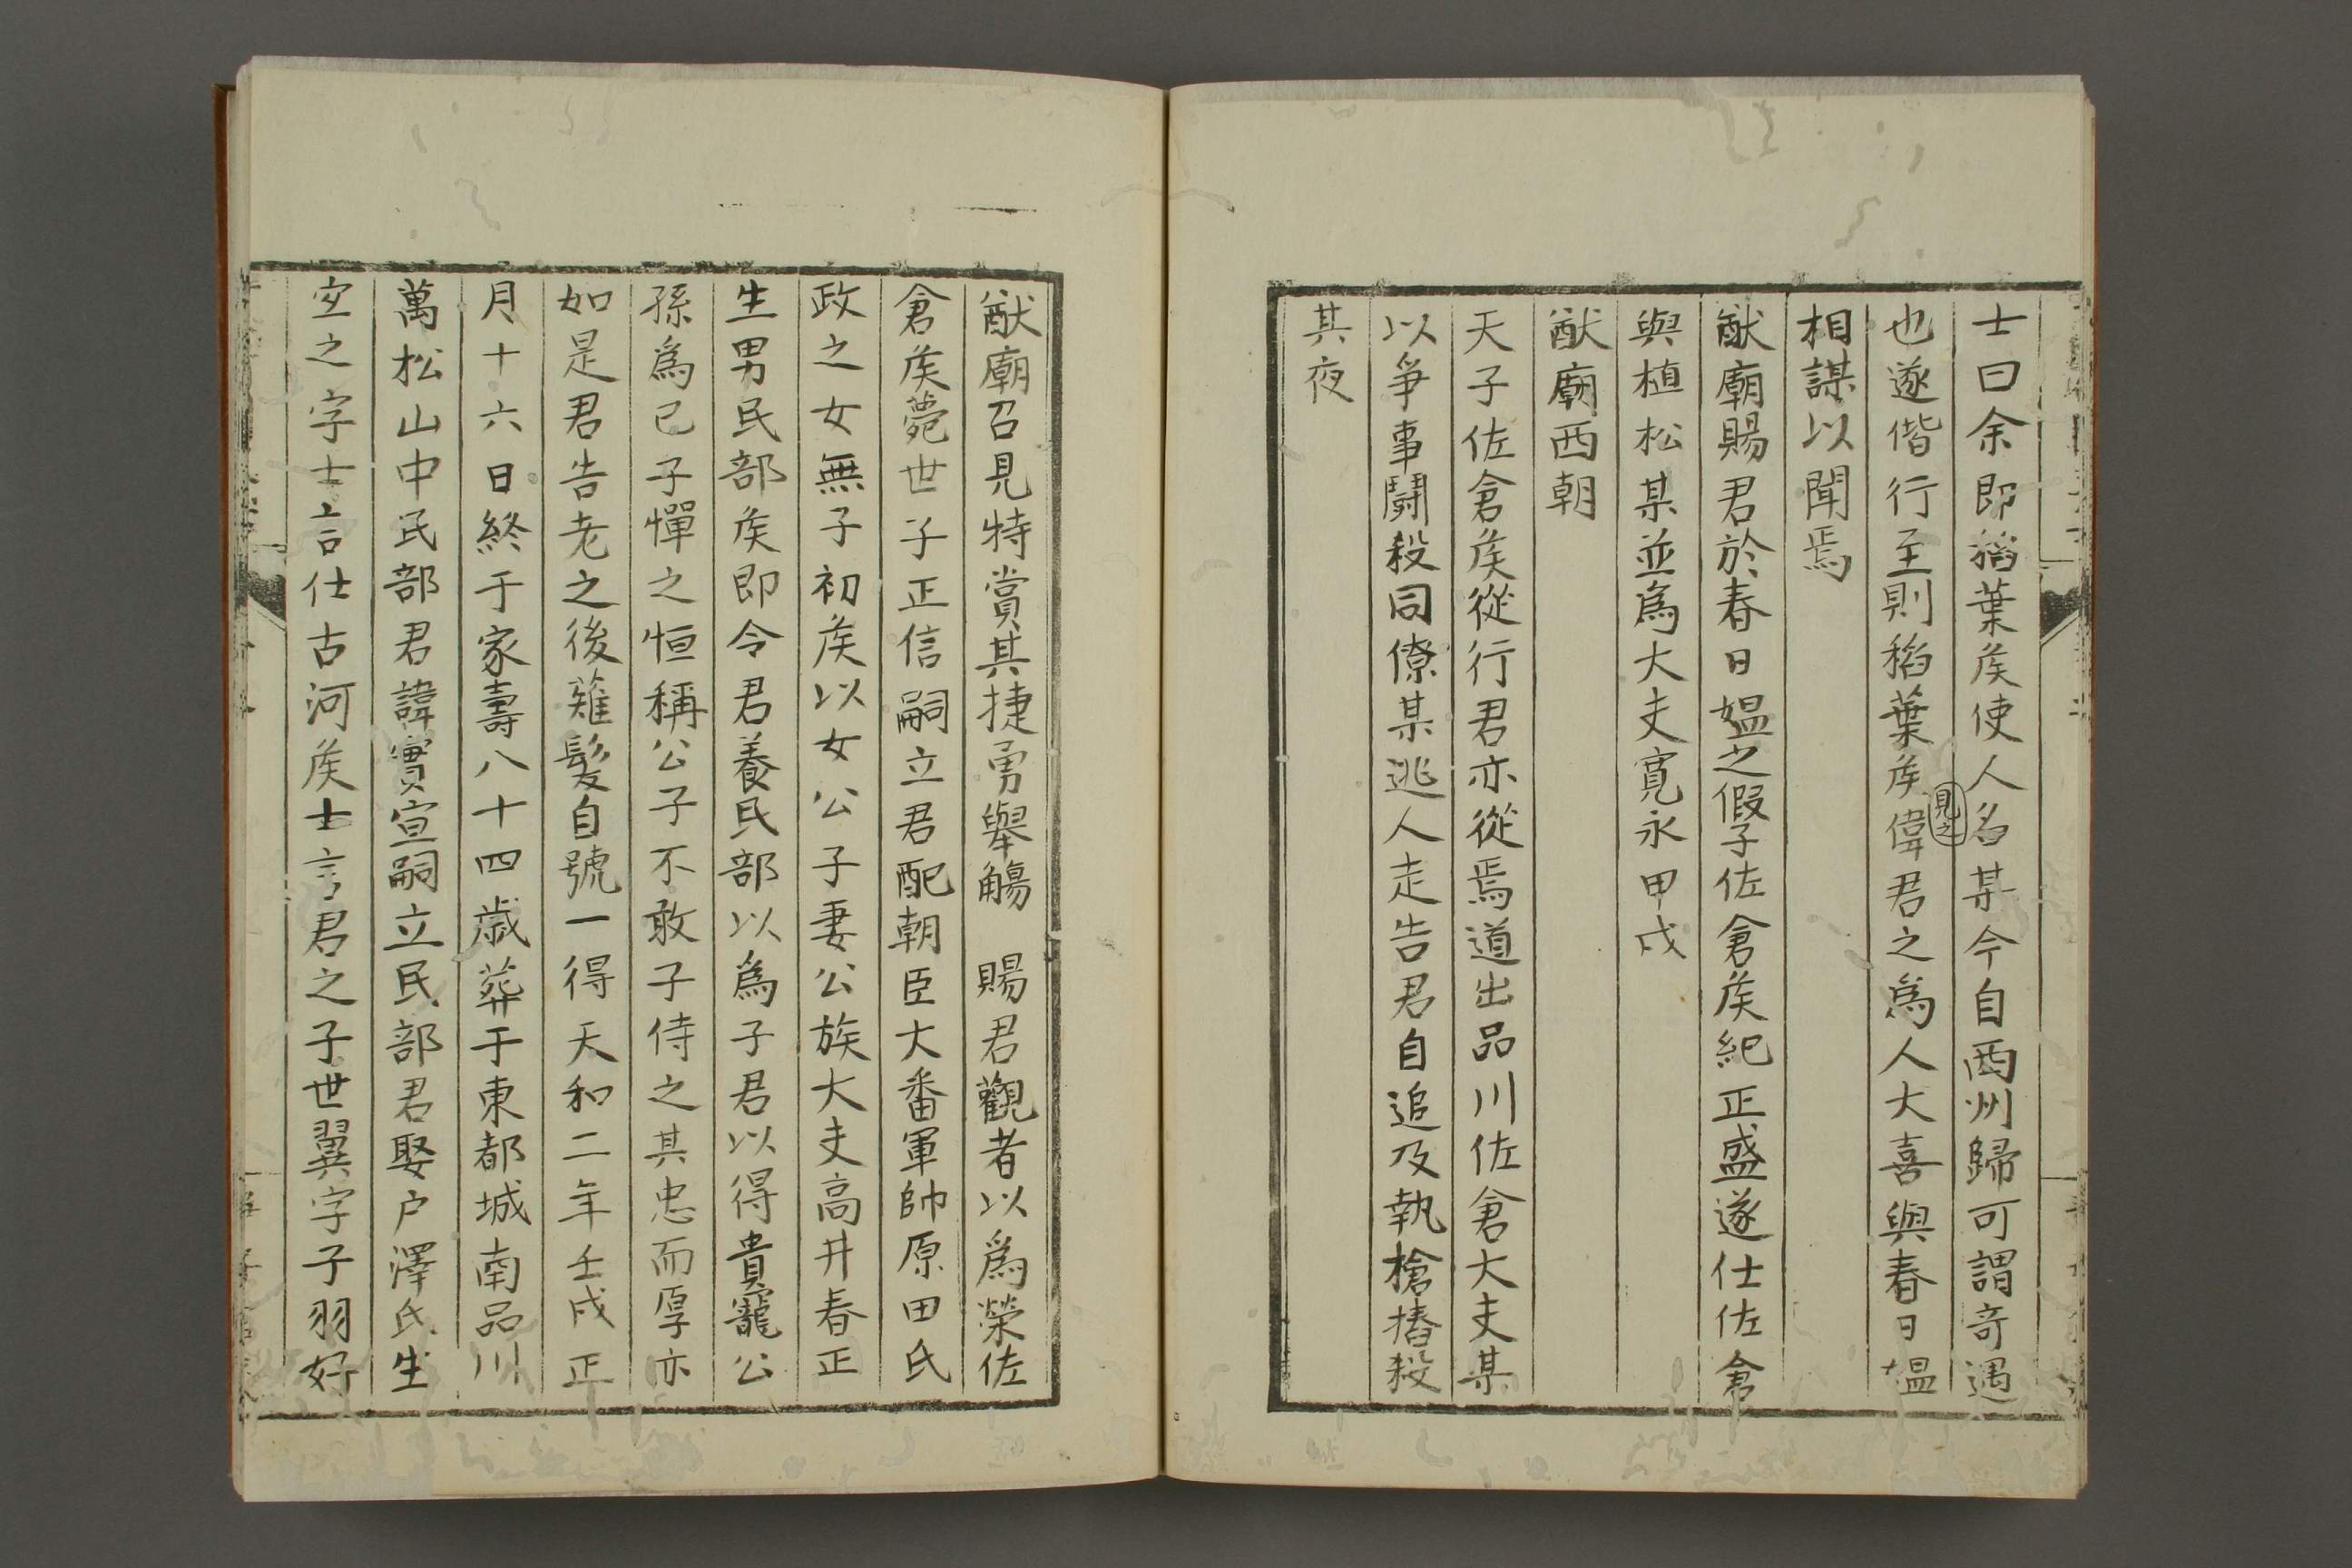 士曰余即稻葉矦使人名某今自西州歸可謂奇遇
也遂偕行至則稻葉矦偉君之爲人大喜與春日媼
見之
相謀以聞焉
猷廟賜君於春日媼之假子佐倉矦紀正盛遂仕佐倉
與植松某並爲大夫寬永甲戌
猷廟西朝
天子佐倉矦從行君亦從焉道出品川佐倉大夫某
以爭事鬪殺同僚某逃人走告君自追及執槍摏殺
其夜
猷廟召見特賞其捷勇舉觴 賜君觀者以爲榮佐
倉矦薨世子正信嗣立君配朝臣大番軍帥原田氏
政之女無子初矦以女公子妻公族大夫高井春正
生男民部矦即令君養民部以爲子君以得貴寵公
孫爲已子憚之恒稱公子不敢子侍之其忠而厚亦
如是君告老之後薙髮自號一得天和二年壬戌正
月十六日終于家壽八十四歳葬于東都城南品川
萬松山中民部君諱實宣嗣立民部君娶户澤氏生
定之字士言仕古河矦士言君之子世翼字子羽好